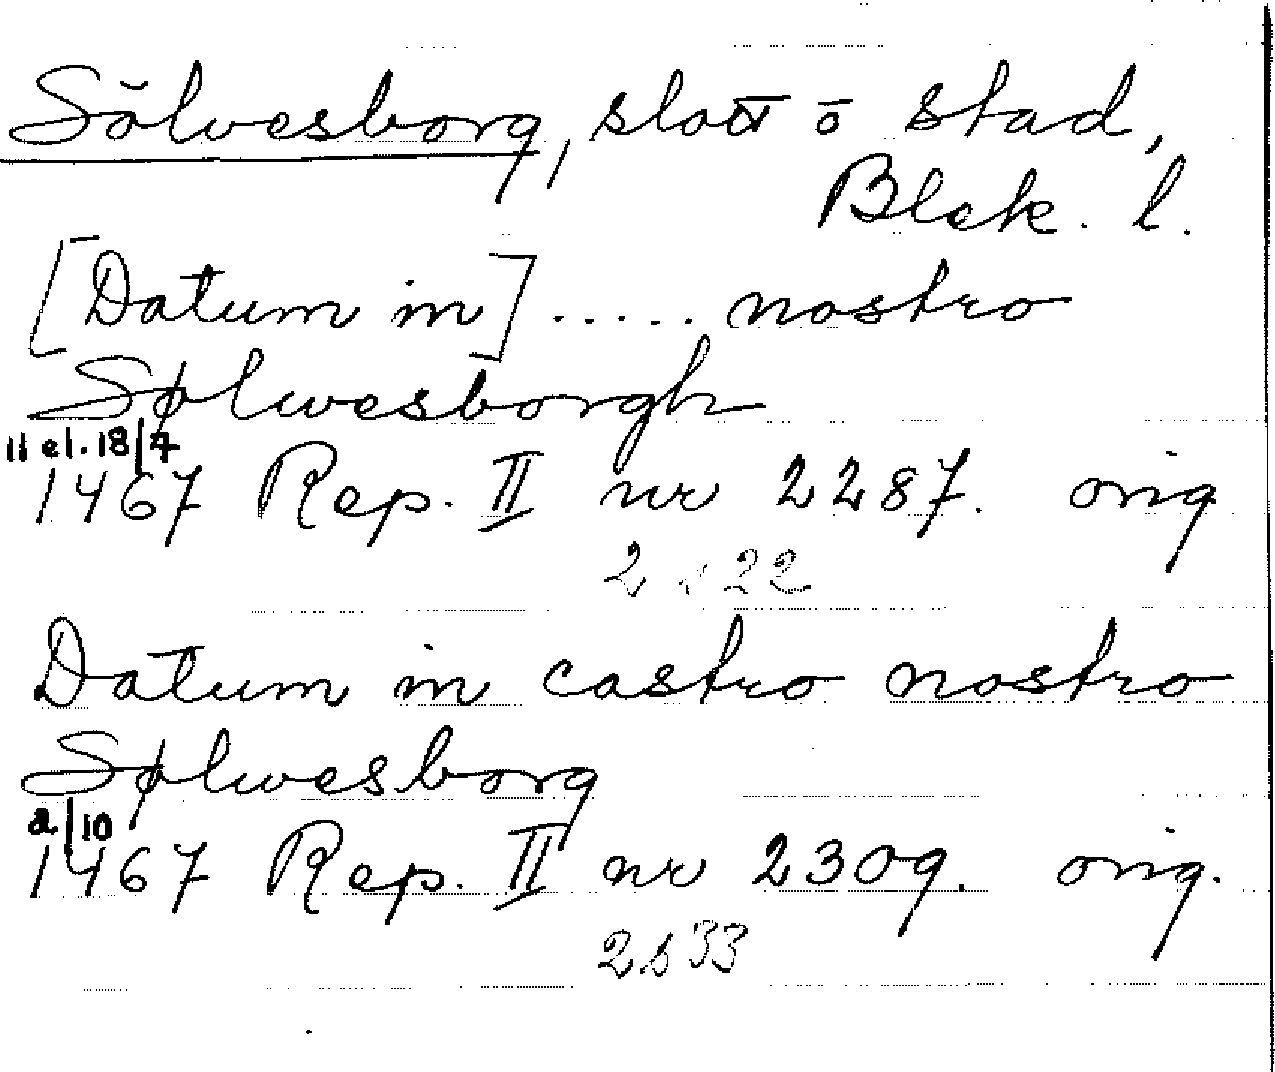 Sölvesborg, slott o stad,
Blek. l.
[Datum in] ..... nostro
Sølwesborgh
11 el. 18/4
1467 Rep. II nr 2287. orig
2 s 22
Datum in castro nostro
Sølwesborg
2/10
1467 Rep. II nr 2309. orig.
2 s 33